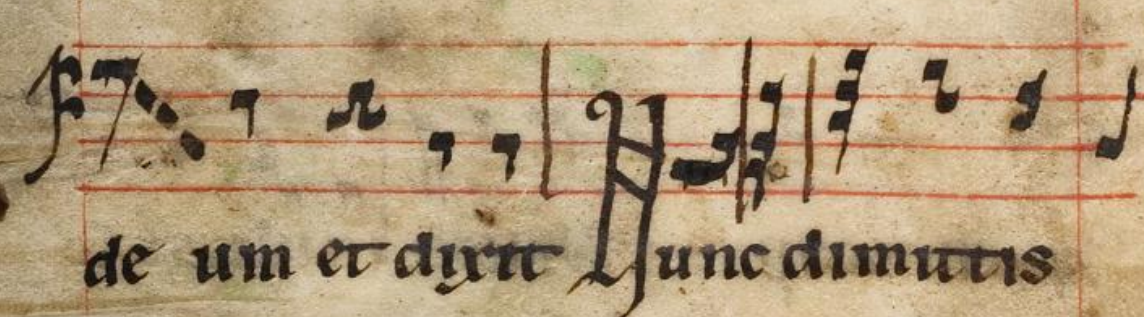 de um et dixit Nunc dimittis